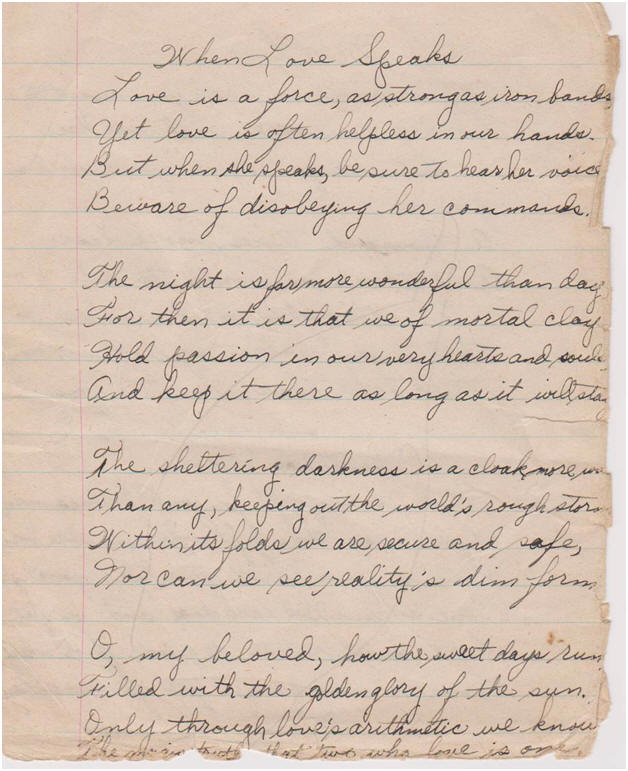 When Love Speaks
Love is a force, as strong as iron bands,
Yet love is often helpless in our hands.
But when she speaks, be sure to hear her voice
Beware of disobeying her commands.
The night is far more wonderful than day
For then it is that we of mortal clay
Hold passion in our very hearts and souls
And keep it there as long as it will stay
The sheltering darkness is a cloak more
Than any, keeping out the world's rough storm
Within its folds we are secure and safe,
Nor can we see reality's dim form
O, my beloved, how the sweet days run
Filled with the golden glory of the sun.
Only through love's arithmetic we know
The truth that two who love is one.